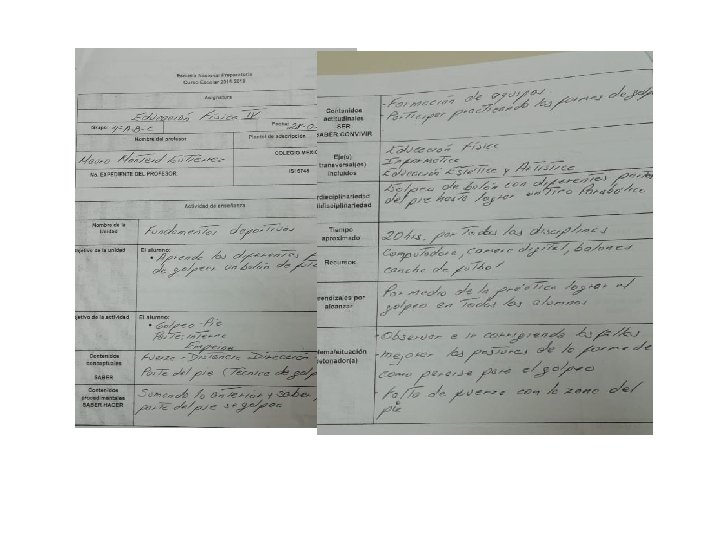 Escuela Nacional Preparatoria
Curso Escolar
Asignatura
Educación Física IV
Grupo: 4º A-B-C
Fecha:
Nombre del profesor
Plantel de adscripción
COLEGIO MEXIC
No. EXPEDIENTE DEL PROFESOR
Actividad de enseñanza
Nombre de la
Unidad
Fundamentos deportivos
bjetivo de la unidad
El alumno:
• Aprenda las diferentes
de golpear un balón de
jetivo de la actividad
El alumno:
• Golpeo Pie
Parte: interna
Empeine
Contenidos
conceptuales
SABER
Fuerza - Distancia Dirección
Parte del pie (Técnica de golp
Contenidos
procedimentales
SABER HACER
Somando lo anterior + saber
parte del pie se golpea
Contenidos
actitudinales
SER
SABER CONVIVIR
- Formación de equipos
- Participar practicando las formas de golp
Eje(s)
transversal(es)
incluidos
Educación Física
Informática
Educación Estética y Artística
rdisciplinariedad
tidisciplinariedad
Golpeo de balón con diferentes partes
del pie hasta lograr un tiro Parabólico
Tiempo
aproximado
20 hrs. por todas las disciplinas
Recursos
Computadora, camara digital, balones
cancha de futbol
rendizajes por
alcanzar
Por medio de la práctica lograr el
golpeo en todos los alumnos
lema/situación
detonador(a)
- Observar e ir corrigiendo las fallas
- mejorar las posturas de la forma de
como pararse para el golpeo
- Falta de fuerza con la zona del
pie